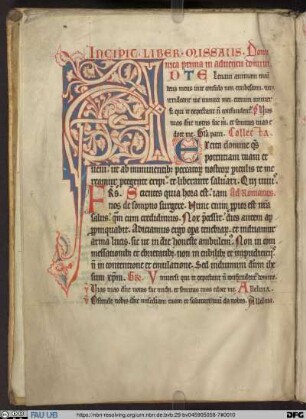 INCIPIT LIBER MISSALIS. Domi
nica prima in adventu domini.
D TE Levavi animam mea
deus meus in te confido non erubescam
irrideant me inimici mei etenim universi
qui te expectant non confundentur. Vias
tuas notas fac et semitas tuas e
doce me. Gla patri. Collecta.
Excita domine qs
potentiam tuam et
veni ut ab imminentib peccator nostror periculis te me
reamur protegente eripi te liberante salvari. Qui vivis.
Frs. Scientes quia hora est iam Ad Romanos.
nos de somno surgere. Nunc enim prior est nra
salus qm cum credidimus. Nox precessit dies autem ap
propinquabit. Abiciamus ergo opa tenebrar et induamur
arma lucis sic ut in die honeste ambulem. Non in com
messationib et ebrietatib non in cubilib et impudiciciis
n in contentione et emulatione. Sed induimini dnm ihe
sum xpm. GR. Universi qui te expectant n confundent domine.
Vias tuas dne notas fac michi et semitas tuas edoce me. Alleluia.
Ostende nobis dne misericordiam tuam et salutare tuum da nobis. Alleluia.
FAU UB
https://nbn-resolving.org/urn:nbn:de:bvb:29-bv045905958-7#0010
DFG